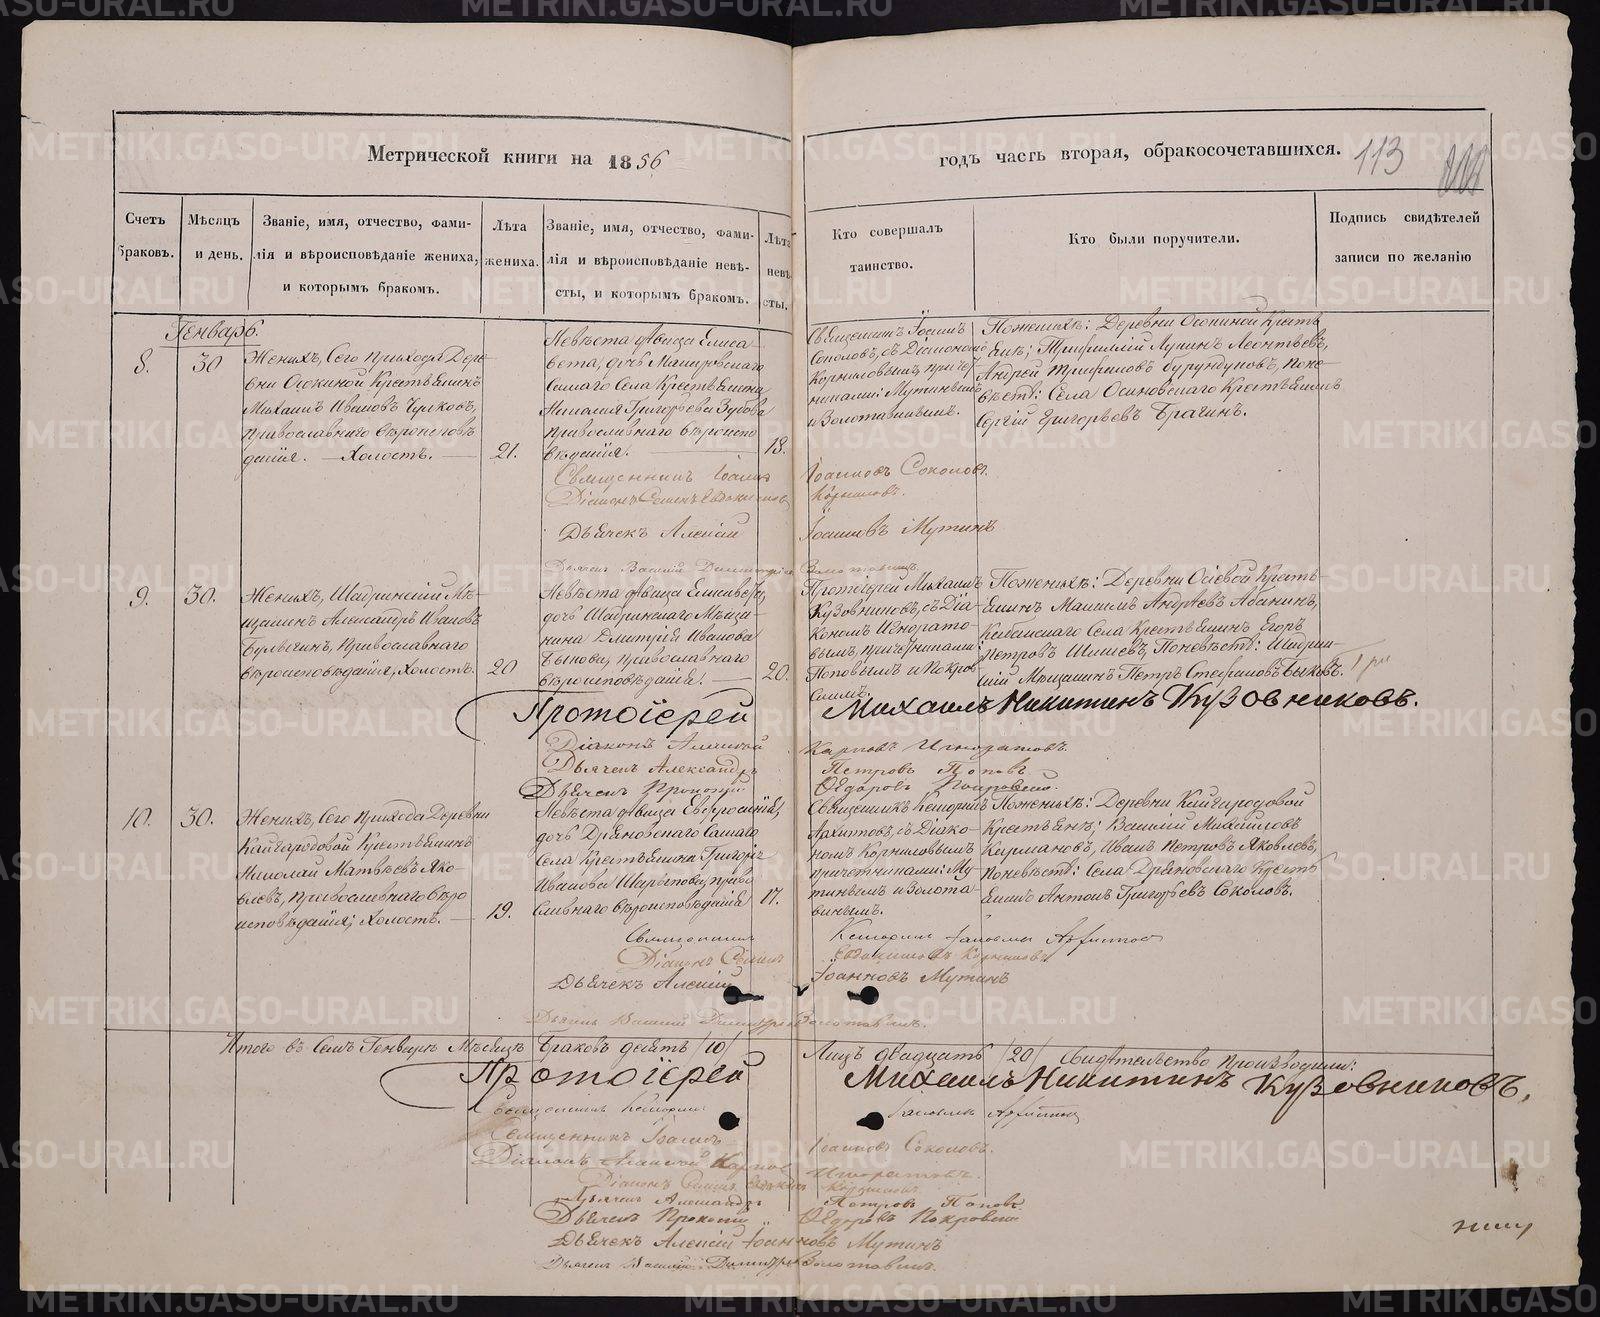 Метрической книги на 1856
годъ часть вторая, обракосочетавшихся.
113
Счетъ браковъ.
Мѣсяцъ и день.
Званіе, имя, отчество, фами-
лія и вѣроисповѣданіе жениха,
и которымъ бракомъ.
Лѣта жениха.
Званіе, имя, отчество, фами-
лія и вѣроисповѣданіе невѣ-
сты, и которымъ бракомъ.
Лѣта невѣ-
сты.
Кто совершалъ
таинство.
Кто были поручители.
Подпись свидѣтелей
записи по желанію
Генварь.
8.
30
Женихъ, Сего прихода Дере-
вни Осокиной Крестьянинъ
Михаилъ Ивановъ Чулковъ,
православнаго вѣроисповѣ
данія. — Холостъ. —
21.
Невѣста дѣвица Елиса
вета, дочь
Села Крестьянина
Николая Григорьева Зубова
православнаго вѣроиспо
вѣданія. —
18.
Священникъ Іоаннъ
Соколовъ, съ Діакономъ
Корниловымъ, причет
никами: Мутинымъ
и Золотавинымъ.
Пожених&#1123;: Деревни Осокиной Кресть
яне; Трифилій Лукинъ Леонтьевъ,
Андрей Трифиловъ Бурундуковъ, Поне-
вѣстѣ: Села Осиновскаго Крестьянинъ
Сергій Григорьевъ Брагинъ.
Священникъ Іоаннъ
Іоанновъ Соколовъ.
Діаконъ Семенъ Евдокимовъ
Корниловъ.
Дьячекъ Алексій
Іоанновъ Мутинъ
Дьячекъ Василій Димитріевъ
Золотавинъ.
9.
30.
Женихъ, Шадринскій Мѣ-
щанинъ Александръ Ивановъ
Булыгинъ, Православнаго
вѣроисповѣданія, Холостъ.
20
Невѣста дѣвица Елисавета,
дочь Шадринскаго Мѣща-
нина Дмитрія Иванова
Быкова, православнаго
вѣроисповѣданія. —
20.
Протоіерей Михаилъ
Кузовниковъ, съ Діа-
кономъ Игнорато-
вымъ, причетниками
Поповымъ и Покров-
скимъ.
Поженихѣ: Деревни Осіевой Кресть-
янинъ Максимъ Андреевъ Абакинъ,
Кабанскаго Села Крестьянинъ Егоръ
Петровъ Шишевъ, Поневѣстѣ: Шадрин-
скій Мѣщанинъ Петръ Стефановъ Быковъ.
Протоіерей
Михаилъ Никитинъ Кузовниковъ.
Діаконъ Алексѣй
Карповъ Игноратовъ.
Дьячекъ Александръ
Петровъ Поповъ
Дьячекъ Прокопій
Ѳедоровъ Покровскій.
10.
30.
Женихъ, Сего прихода Деревни
Кайгародовой Крестьянинъ
Николай Матвѣевъ Яко-
влевъ, Православнаго вѣро
исповѣданія; Холостъ. —
19.
Невѣста дѣвица Евфросинія,
дочь Дряновскаго
Села Крестьянина Григорія
Иванова Шарыпова, право
славнаго вѣроисповѣданія
17.
Священникъ Кесарій
Архиповъ, съ Діако-
номъ Корниловымъ
причетниками: Му-
тинымъ и Золота-
винымъ.
Поженихѣ: Деревни Кайгародовой
Крестьяне; Василій Михайловъ
Кирмановъ, Иванъ Петровъ Яковлевъ,
Поневѣстѣ: Села Дряновскаго Кресть
янинъ Антонъ Григорьевъ Соколовъ.
Священникъ
Діаконъ Семенъ
Евдокимовъ Корниловъ
Дьячекъ Алексій
Іоанновъ Мутинъ
Дьячекъ Василій Димитріевъ Золотавинъ.
Итого въ Семъ Генварѣ Мѣсяцѣ Браковъ десять /10/
Лицъ двадцать /20/ Свидѣтельство производили:
Протоіерей
Михаилъ Никитинъ Кузовниковъ.
Священникъ Кесарій
Священникъ Іоаннъ
Іоанновъ Соколовъ.
Діаконъ Алексѣй Карповъ
Игноратовъ.
Діаконъ Семенъ
Корниловъ
Дьячекъ Александръ
Петровъ Поповъ
Дьячекъ Прокопій
Ѳедоровъ Покровскій
Дьячекъ Алексій Іоанновъ Мутинъ
Дьячекъ Василій Димитріевъ Золотавинъ.
METRIKI.GASO-URAL.RU